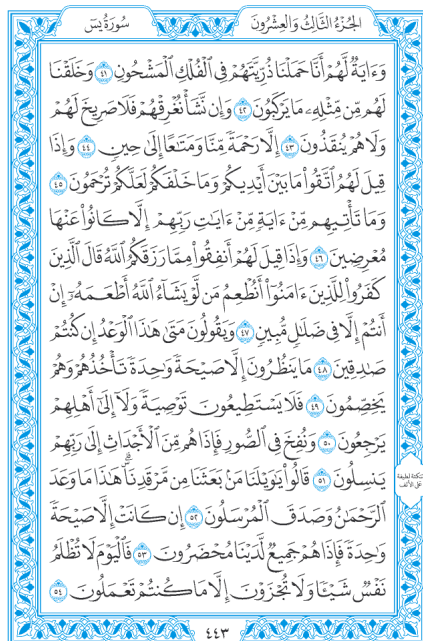 الجُزْءُ الثَّالِثُ وَالعِشْرُونَ
سُورَةُ يسٓ
وَءَايَةٌ لَّهُمْ أَنَّا حَمَلْنَا ذُرِّيَّتَهُمْ فِي ٱلْفُلْكِ ٱلْمَشْحُونِ ٤١ وَخَلَقْنَا
لَهُم مِّن مِّثْلِهِۦ مَا يَرْكَبُونَ ٤٢ وَإِن نَّشَأْ نُغْرِقْهُمْ فَلَا صَرِيخَ لَهُمْ
وَلَا هُمْ يُنقَذُونَ ٤٣ إِلَّا رَحْمَةً مِّنَّا وَمَتَٰعًا إِلَىٰ حِينٍ ٤٤ وَإِذَا
قِيلَ لَهُمُ ٱتَّقُوا۟ مَا بَيْنَ أَيْدِيكُمْ وَمَا خَلْفَكُمْ لَعَلَّكُمْ تُرْحَمُونَ ٤٥
وَمَا تَأْتِيهِم مِّنْ ءَايَةٍ مِّنْ ءَايَٰتِ رَبِّهِمْ إِلَّا كَانُوا۟ عَنْهَا
مُعْرِضِينَ ٤٦ وَإِذَا قِيلَ لَهُمْ أَنفِقُوا۟ مِمَّا رَزَقَكُمُ ٱللَّهُ قَالَ ٱلَّذِينَ
كَفَرُوا۟ لِلَّذِينَ ءَامَنُوٓا۟ أَنُطْعِمُ مَن لَّوْ يَشَآءُ ٱللَّهُ أَطْعَمَهُۥٓ إِنْ
أَنتُمْ إِلَّا فِي ضَلَٰلٍ مُّبِينٍ ٤٧ وَيَقُولُونَ مَتَىٰ هَٰذَا ٱلْوَعْدُ إِن كُنتُمْ
صَٰدِقِينَ ٤٨ مَا يَنظُرُونَ إِلَّا صَيْحَةً وَٰحِدَةً تَأْخُذُهُمْ وَهُمْ
يَخِصِّمُونَ ٤٩ فَلَا يَسْتَطِيعُونَ تَوْصِيَةً وَلَآ إِلَىٰٓ أَهْلِهِمْ
يَرْجِعُونَ ٥٠ وَنُفِخَ فِي ٱلصُّورِ فَإِذَا هُم مِّنَ ٱلْأَجْدَاثِ إِلَىٰ رَبِّهِمْ
يَنسِلُونَ ٥١ قَالُوا۟ يَٰوَيْلَنَا مَنۢ بَعَثَنَا مِن مَّرْقَدِنَا ۜ هَٰذَا مَا وَعَدَ
ٱلرَّحْمَٰنُ وَصَدَقَ ٱلْمُرْسَلُونَ ٥٢ إِن كَانَتْ إِلَّا صَيْحَةً
وَٰحِدَةً فَإِذَا هُمْ جَمِيعٌ لَّدَيْنَا مُحْضَرُونَ ٥٣ فَٱلْيَوْمَ لَا تُظْلَمُ
نَفْسٌ شَيْـًٔا وَلَا تُجْزَوْنَ إِلَّا مَا كُنتُمْ تَعْمَلُونَ ٥٤
سكتة لطيفة
على الألف
٤٤٣